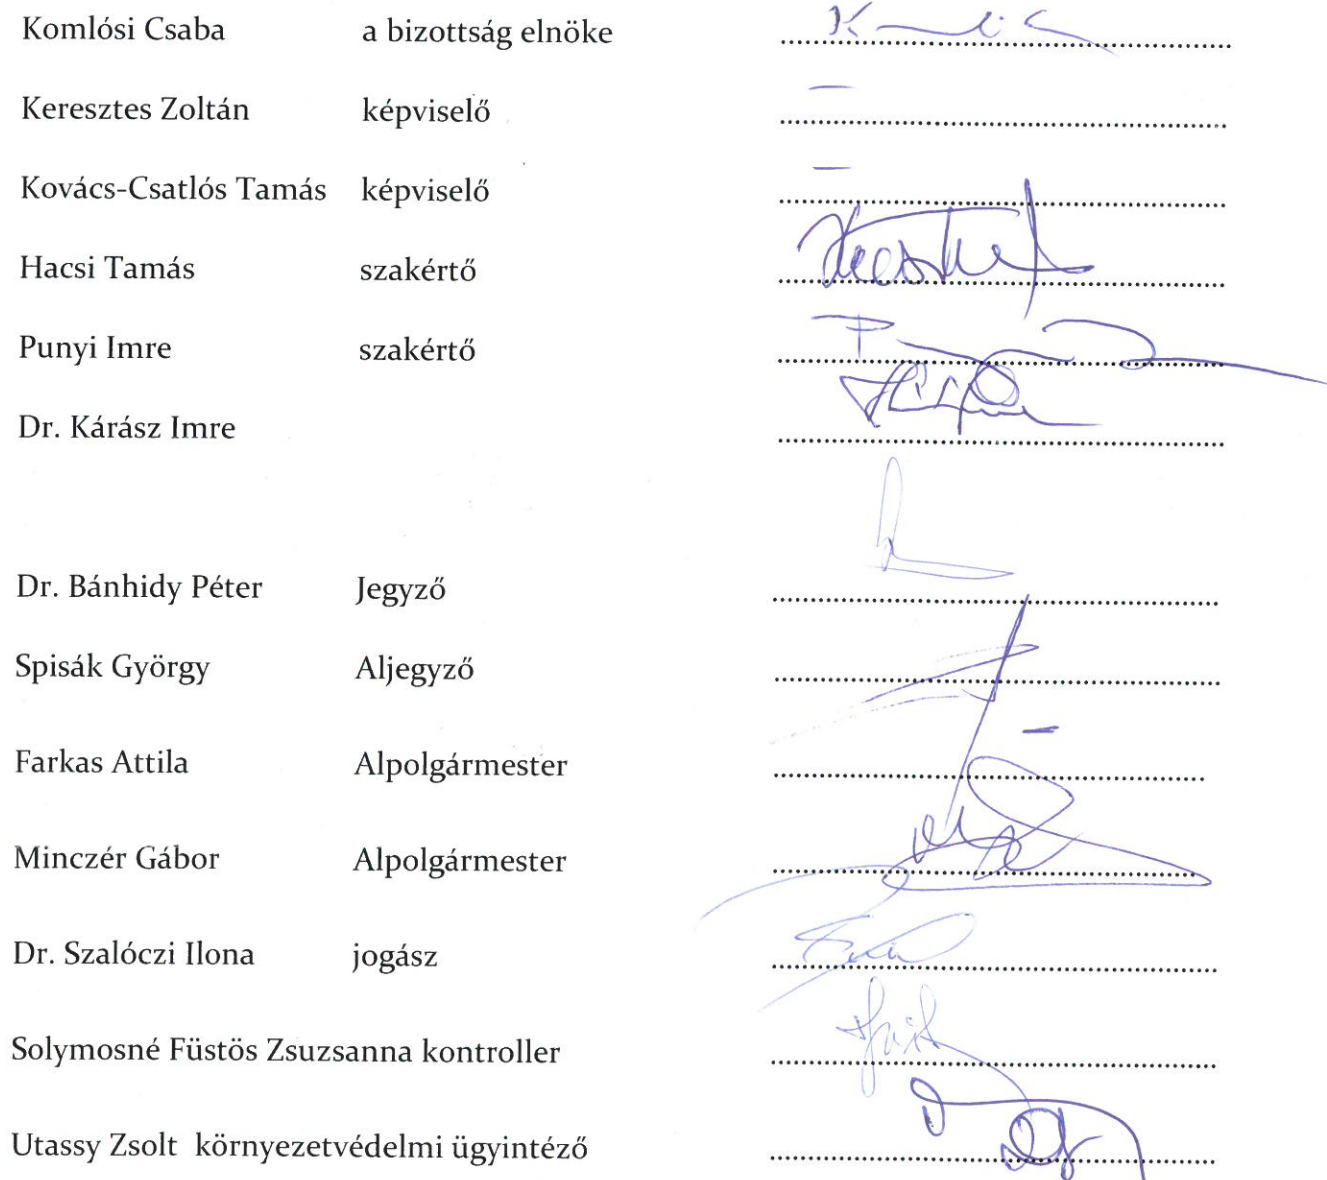 Komlósi Csaba a bizottság elnöke
Keresztes Zoltán képviselő
Kovács-Csatlós Tamás képviselő
Hacsi Tamás szakértő
Punyi Imre szakértő
Dr. Kárász Imre
Dr. Bánhidy Péter Jegyző
Spisák György Aljegyző
Farkas Attila Alpolgármester
Minczér Gábor Alpolgármester
Dr. Szalóczi Ilona jogász
Solymosné Füstös Zsuzsanna kontroller
Utassy Zsolt környezetvédelmi ügyintéző